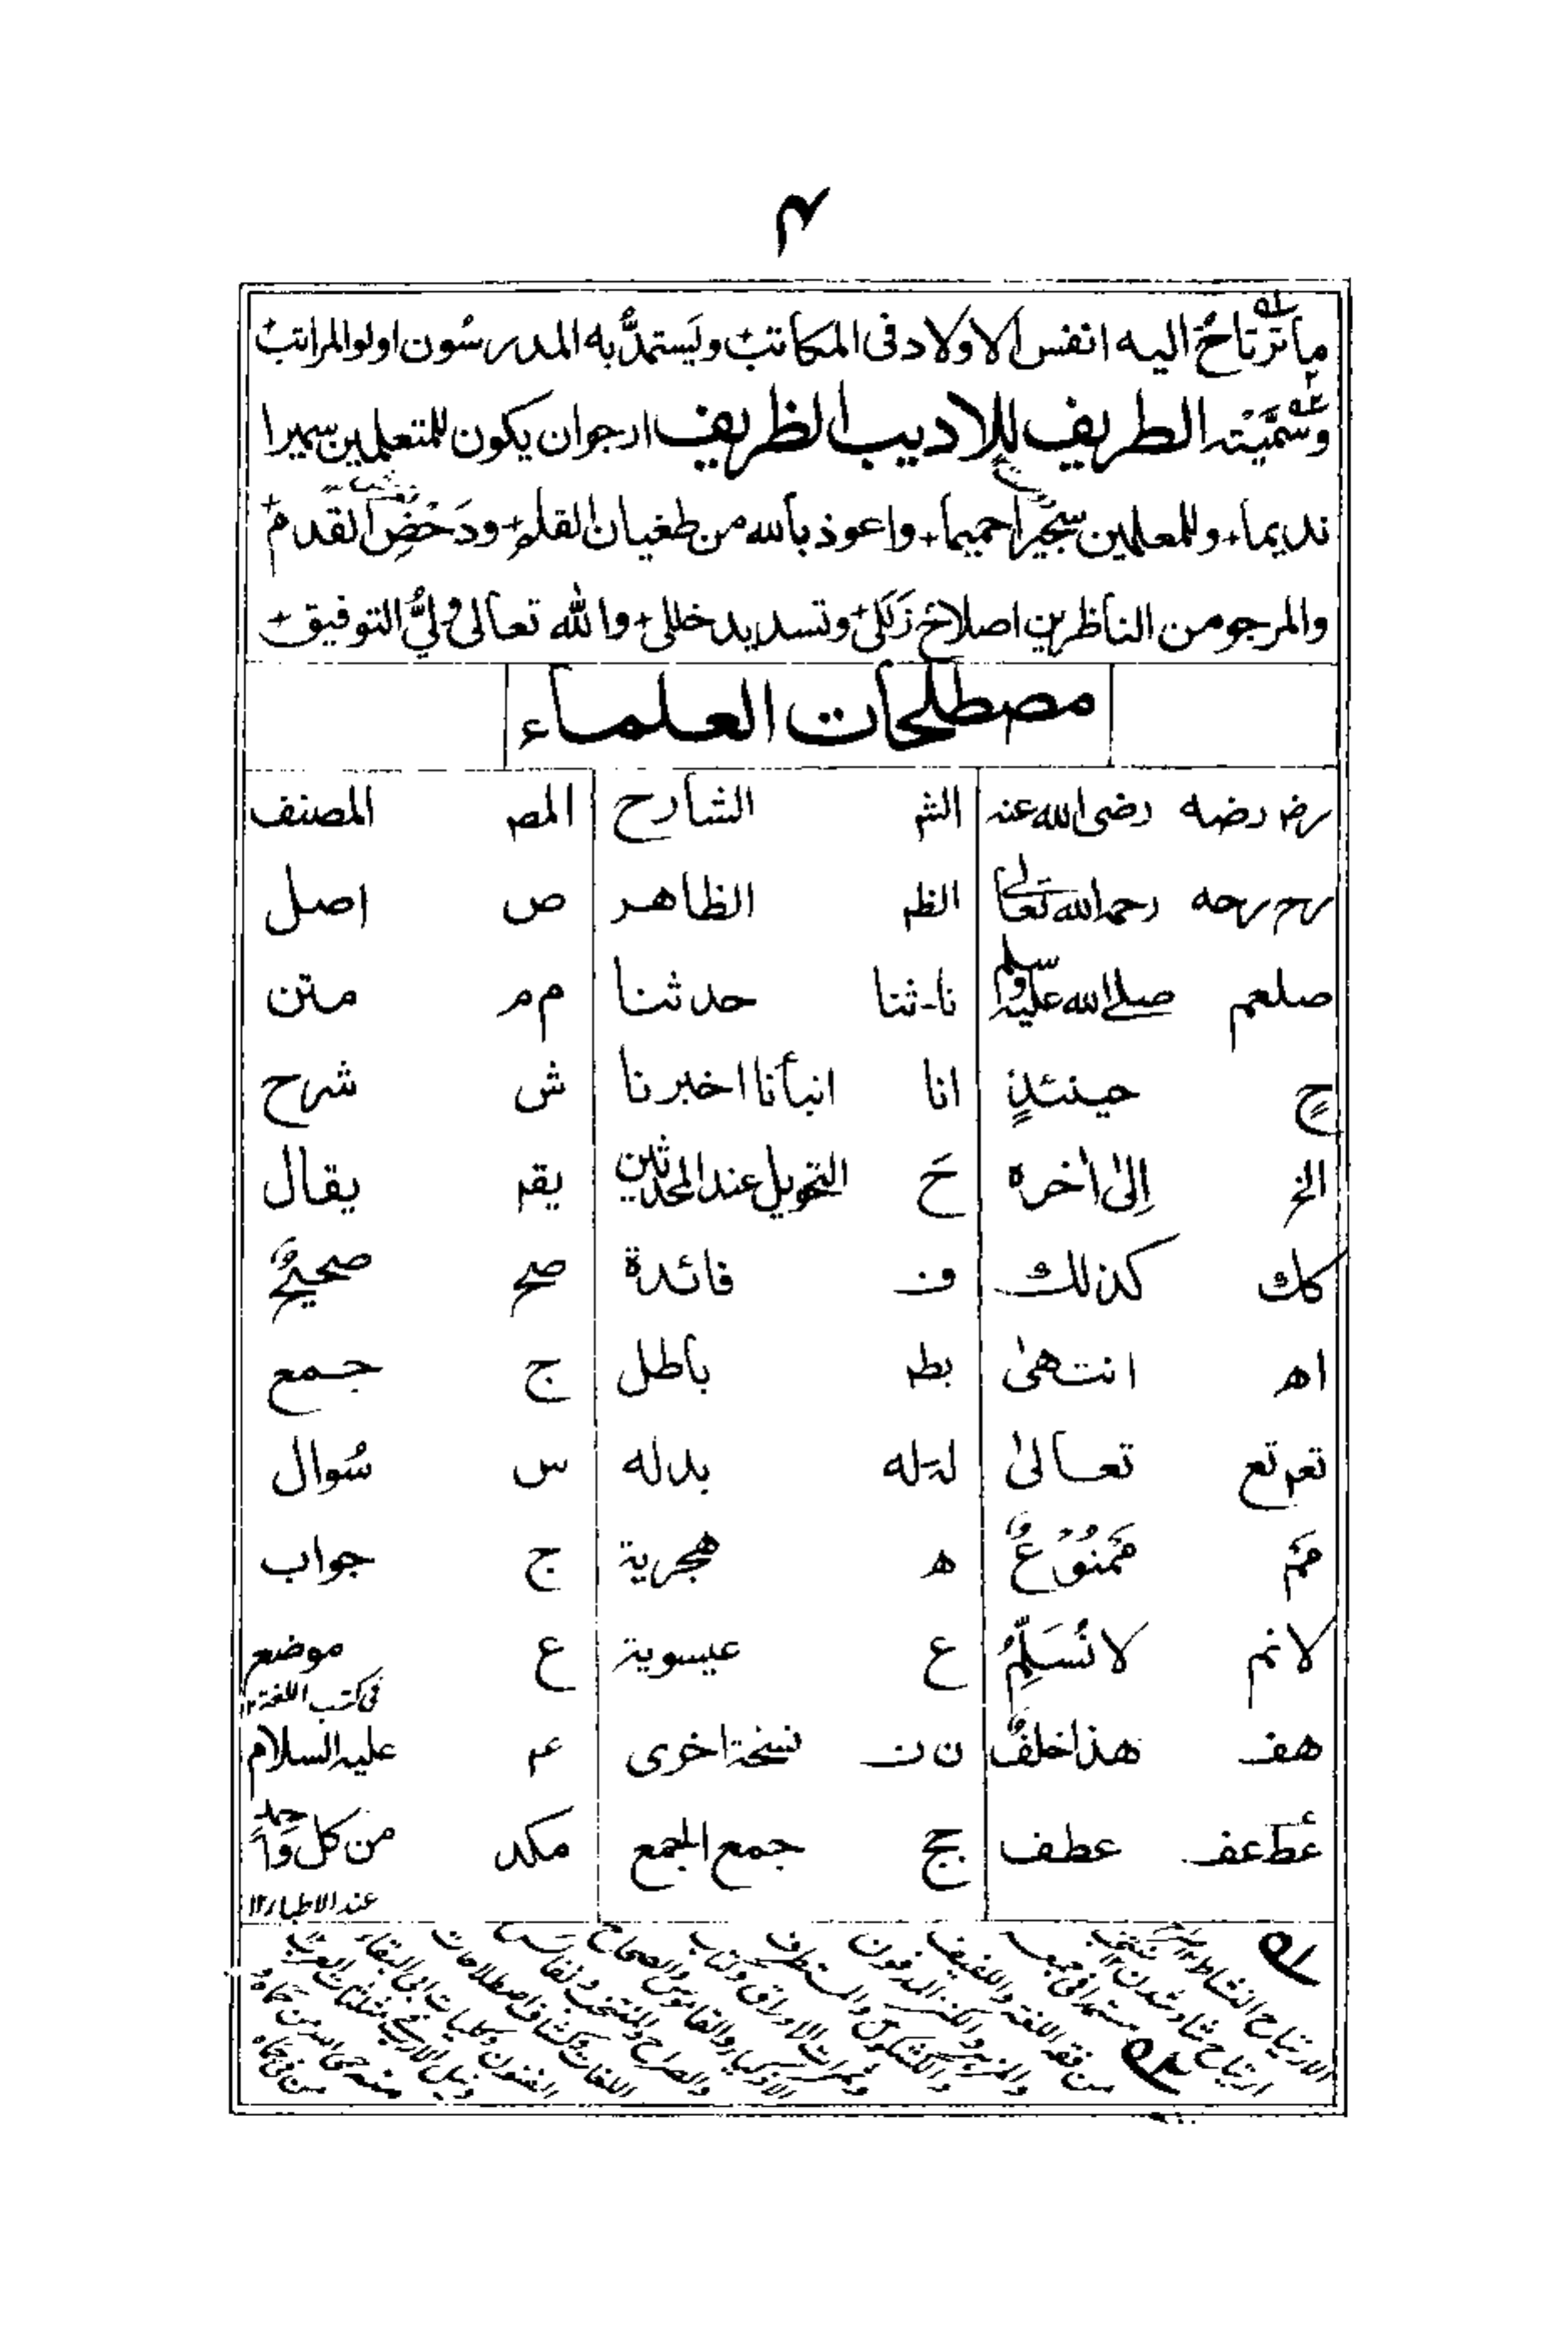 ۴
ما ترتاحُ اليه انفس الاولاد فى المكاتب؛ ويَستمدُّ به المدرسُون اولو المراتب؛
وسَمَّيْتُه الطريف للاديب الظريف ارجوان يكون للمتعلمين سميرا
نديما، وللمعلمين سَجِيْرا حميما، واعوذ بالله من طغيان القلم، ودَحْضِ القدم،
والمرجو من الناظرين اصلاح زَلَلى، وتسديد خللى، والله تعالىٰ ولىُّ التوفيق،
مصطلحات العلماء
رضـ رضه رضى الله عنه الشـ الشارح المصـ المصنف
رح رحه رحمه الله تعالىٰ الظـ الظاهر ص اصل
صلعم صلى الله عليه وسلم نا۔ثنا حدثنا م مـ متن
حٍ حينئذٍ انا انبأنا اخبرنا ش شرح
الخ اِلىٰ اٰخره حَ التحويل عند المحدثين يقـ يقال
كك كذلك ف فائدة صح صحيحٌ
اھ انتهىٰ بطـ باطل ج جمع
تعـ تع تعالىٰ لہ۔له بدله س سُوال
مَمـ مَمنُوْعٌ ھ هجرية ج جواب
لانم لا نُسَلِّمُ ع عيسوية ع موضع
فى كتب اللغة ۱۲
هف هذا خلفٌ ن ن نسخة اخرى ؏ عليه السلام
عطـ عف عطف جج جمع الجمع مكد من كل واحد
عند الاطباء ۱۲
لہ الارتياح النشاط
ارتياح شاد شدن ۱۲ منتخب
مستمدا فى جمعه
من فقه اللغة واللفيف
والمزهر والكنز المدفون
والكشكول والمستطرف
وثمرات الاوراق وكتاب
الاذكياء والقاموس والصحاح
والصراح والمنتخب ونفائس
اللغات وكشاف اصطلاحات
الفنون وكليات ابى البقاء
ونيل الارب فى مثلثات العرب